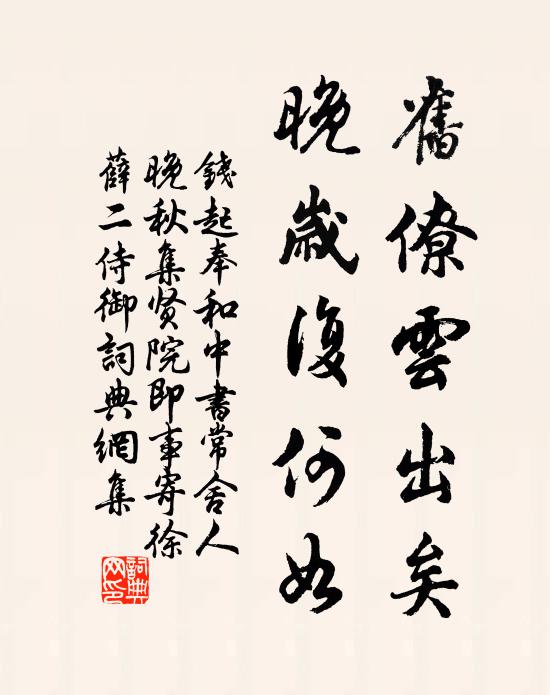 舊僚雲出矣
晚歲復何如
錢起奉和中書常舍人
晚秋集贤院即事寄徐
薛二侍御詞典網集
詞典网印